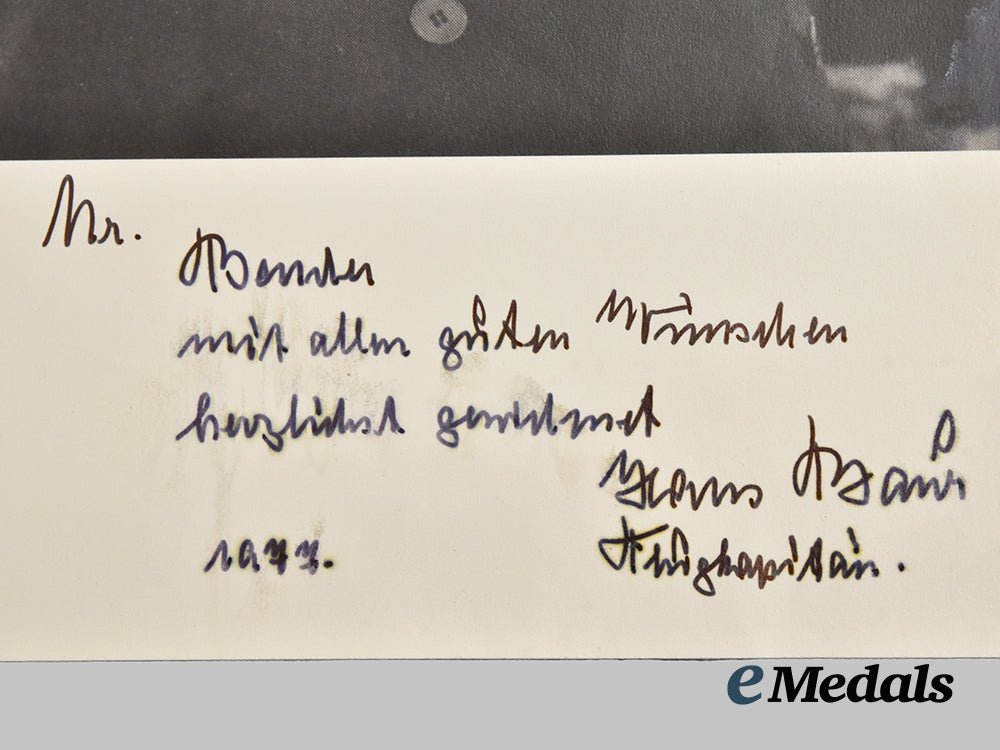 Mr.
Bender
mit allen guten Wünschen
herzlichst gewidmet
Hans Baur
1977.
Flugkapitän.
eMedals